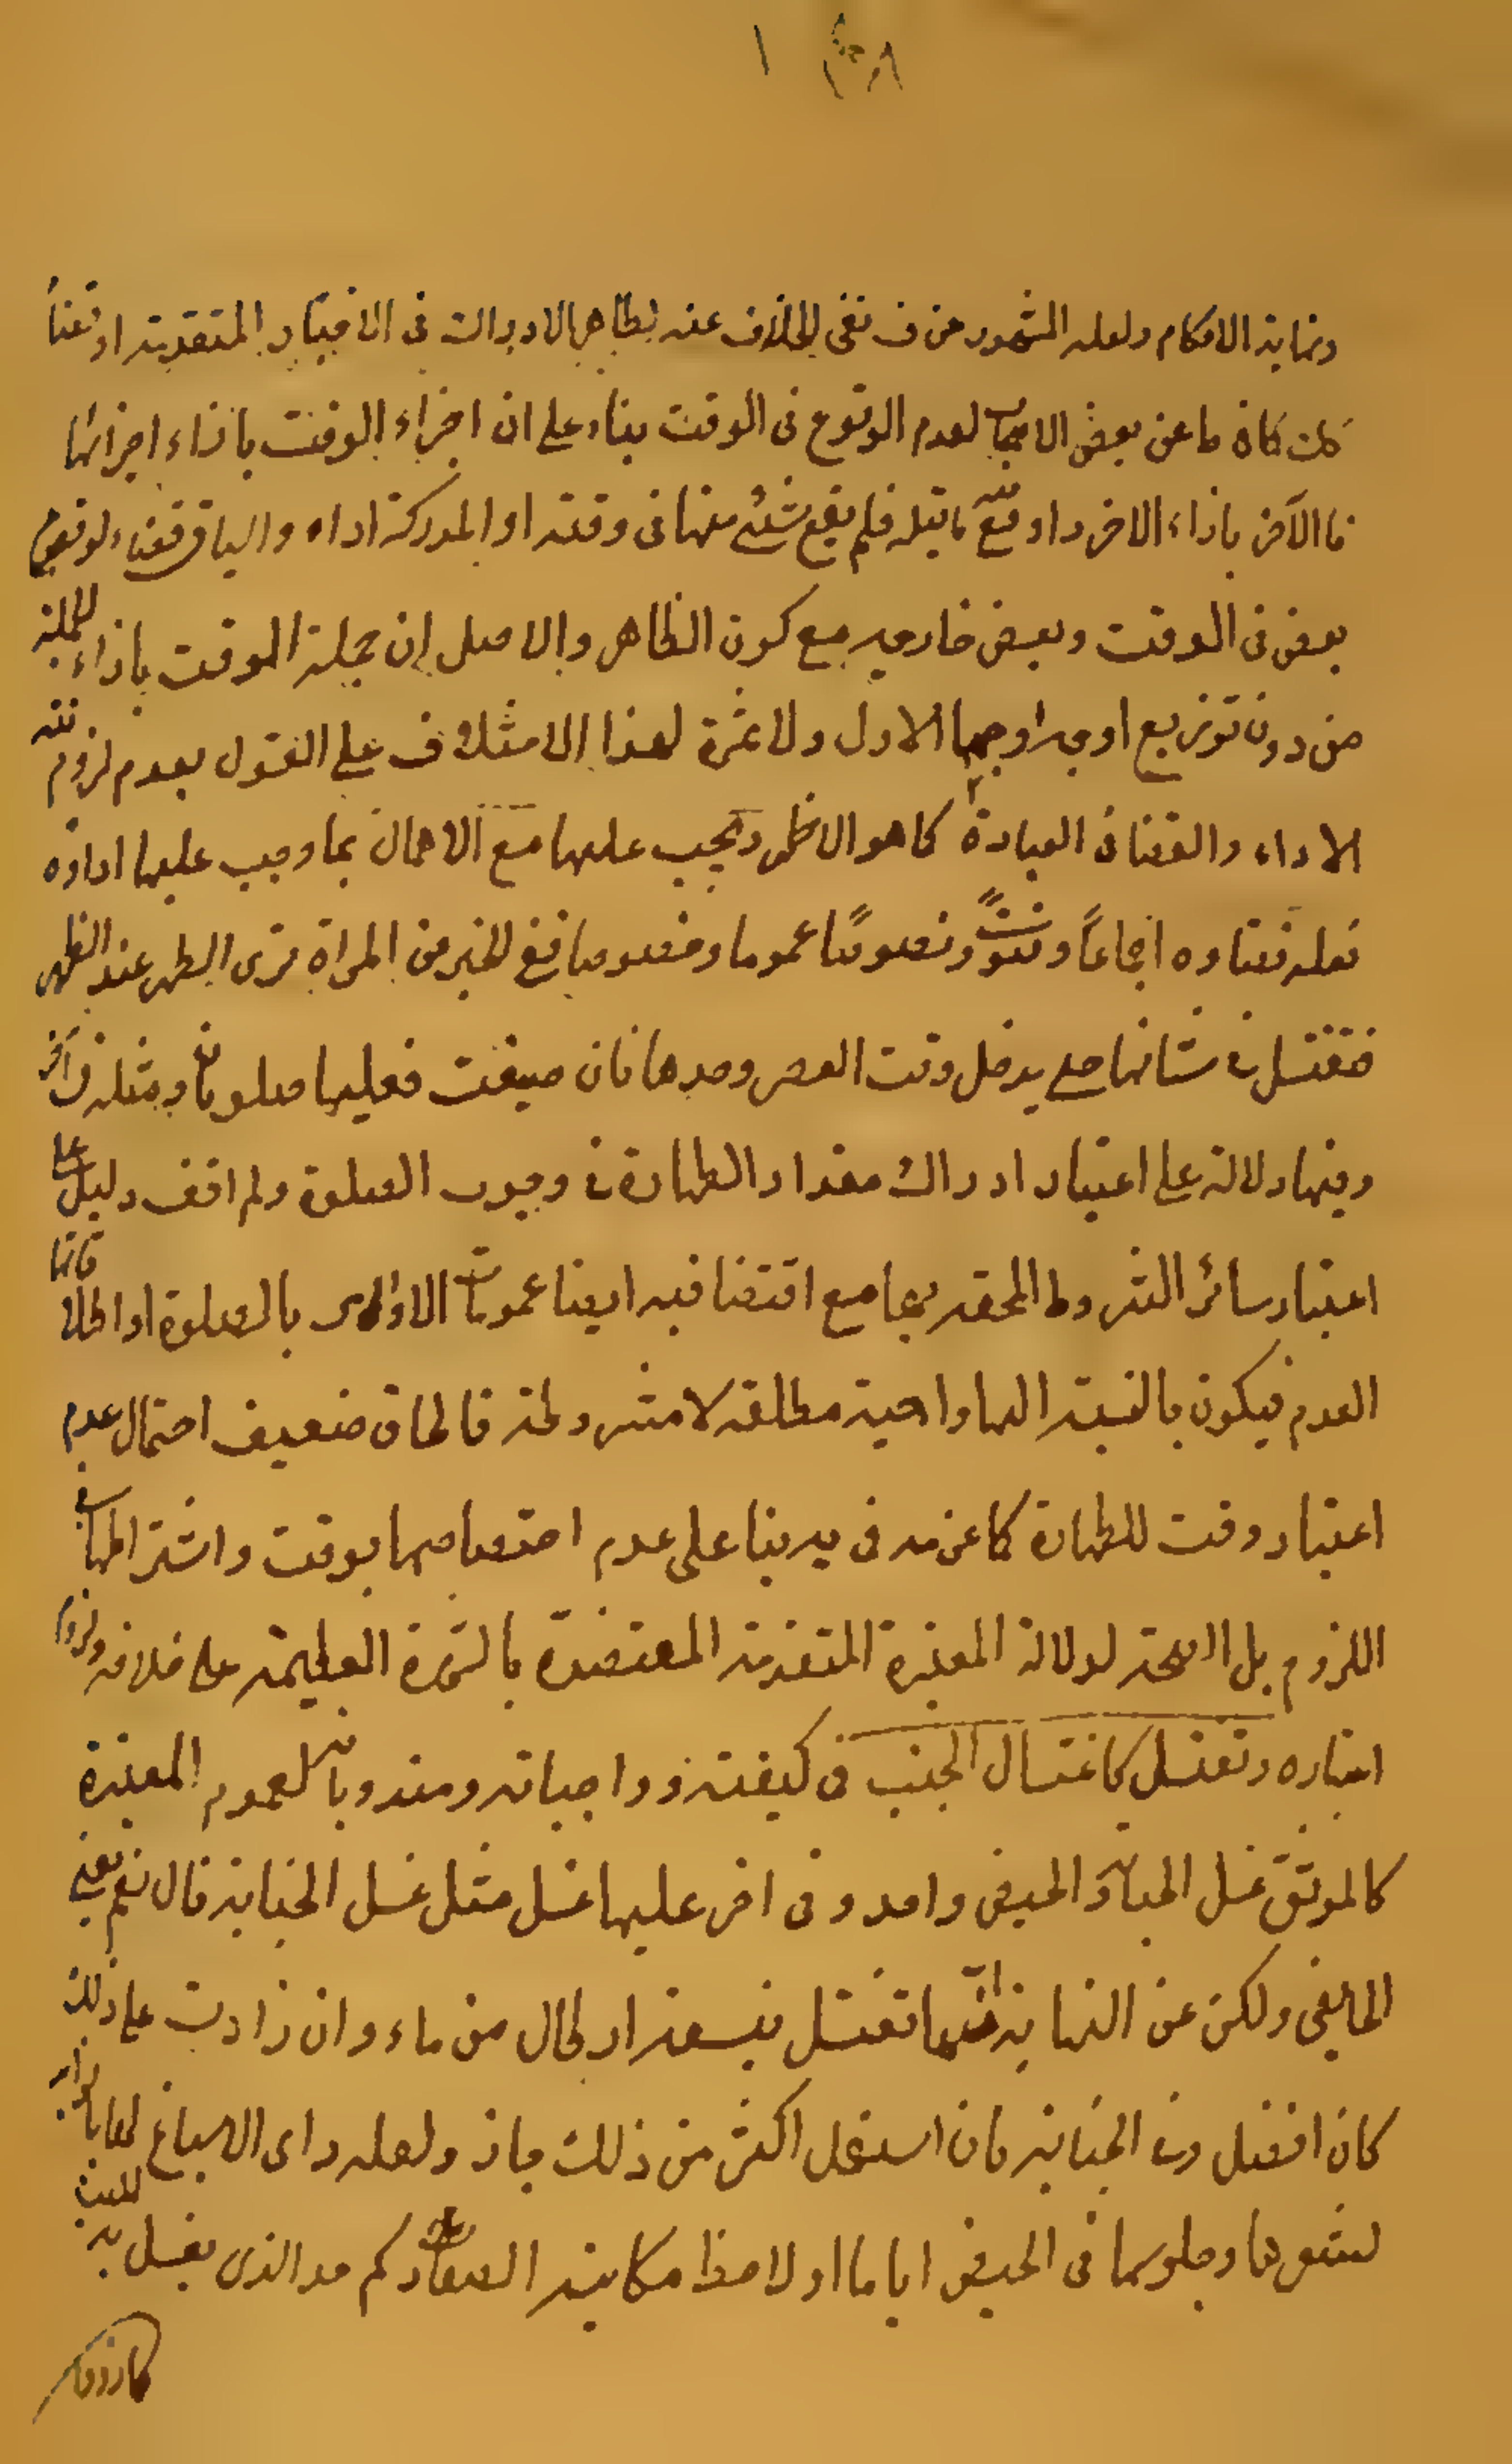 ونهاية الاحكام ولعله المشهور من ف نفى الخلاف عنه لظاهر الادراك فى الاخبار المتقدمة او قضاءً
كك كما عن بعض الاصحاب لعدم الوقوع فى الوقت بناء على ان اجزاء الوقت بازاء اجزائها
فالآخر بازاء الاخر واوقع فيه ما قبله فلم يقع شئ منها فى وقته او المدركة اداء والباقى قضاء لوقوع
بعض فى الوقت وبعض خارجه مع كون الظاهر والاصل ان جملة الوقت بازاء الجملة
من دون توزيع اوجه اوجهها الاول ولا ثمرة لهذا الاختلاف على القول بعدم لزوم نية
الاداء والقضا فى العبادة كما هو الاظهر ويجب عليها مع الاهمال بما وجب عليها اداؤه
فعله قضاؤه اجماعاً وفتوىً ونصوصًا عموما وخصوصا ففى الخبر من المراة ترى الطهر عند الظهر
فتغتسل فى شانها حتى يدخل وقت العصر وحدها فان ضيعت فعليها صلوتان ومثله فى آخر
وفيها دلالة على اعتبار ادراك مقدار الطهارة فى وجوب الصلوة ولم اقف دليل على
اعتبار سائر الشروط الملحقة بها مع اقتضا فيه ايضا عمومات الاوامر بالصلوة او اطلاقاتها
العدم فيكون بالنسبة اليها واجبة مطلقة لا مشروطة فالحاق ضعيف احتمال عدم
اعتبار وقت للطهارة كما عن مد فى ير بنا على عدم اختصاصها بوقت واشتراطها فى
اللزوم بل الصحة لدلالة المعتبرة المتقدمة المعتضدة بالشهرة العظيمة على خلافه ولزوم
اعتباره وتغتسل كاغتسال الجنب فى كيفيته وواجباته ومندوباته لعموم المعتبرة
كالموثق غسل الجنابة والحيض واحد وفى اخر عليها غسل مثل غسل الجنابة قال نعم يعنى
الحايض ولكن عن النهاية انها تغتسل بتسعة ارطال من ماء وان زادت على ذلك
كان افضل وفى الجنابة فان استعمل اكثر من ذلك جاز ولعله راى الاسباغ لها
لشعرها وجلوسها فى الحيض اياما او لاحظ مكاتبة الصفار كم حد الذى يغسل به الميت